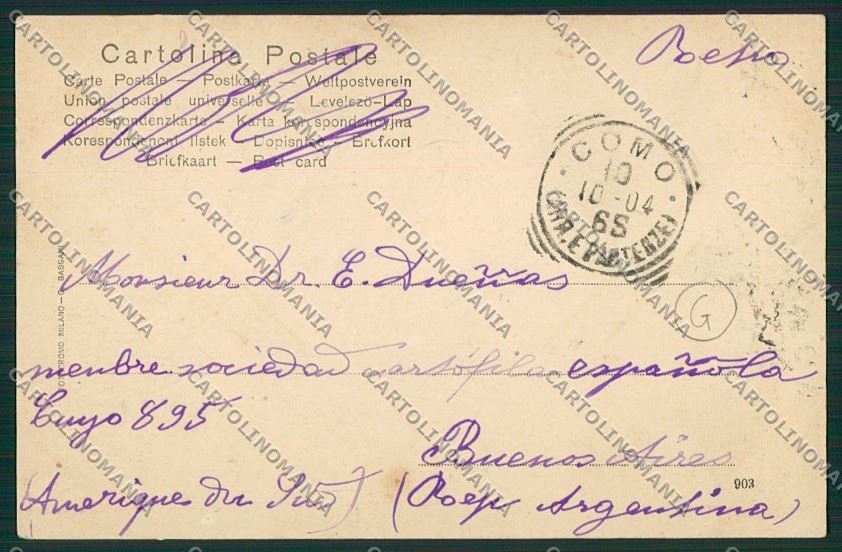 Cartolina Postale
Carte Postale — Postkarte — Weltpostverein
Union postale universelle — Levelezö-Lap
Correspondenzkarte — Karta korespondencyjna
Korespondencni listek — Dopisnice — Brefkort
Briefkaart — Post card
COMO
10
10-04
6S
(ARR. E PARTENZE)
Monsieur Dr. E. Dueñas
menbre sociedad cartófila española
Cuyo 895
Buenos Aires
903
(Amerique du Sud) (Rep. Argentina)
G
MILANO — BASSANI
CARTOLINOMANIA